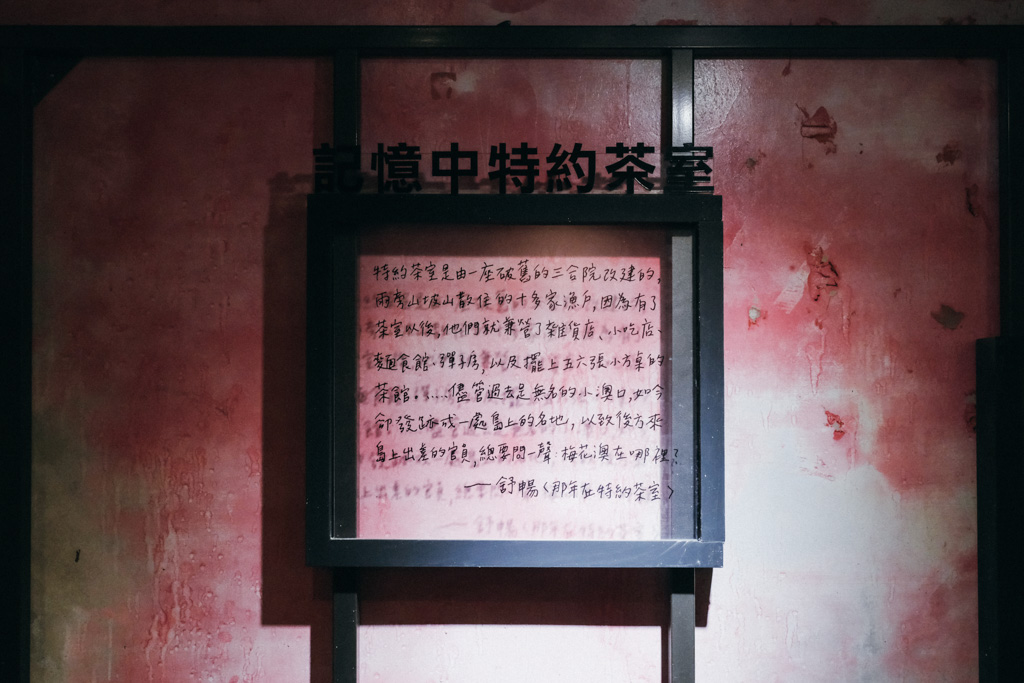 記憶中特約茶室
特約茶室是由一座破舊的三合院改建的,
兩旁山坡山散住的十多家漁戶,因為有了
茶室以後,他們就兼營了雜貨店、小吃店、
麵食館、彈子房,以及擺上五六張小方桌的
茶館......儘管過去是無名的小澳口,如今
卻發跡成一處島上的名地,以致後方來
島上出差的官員,總要問一聲:梅花澳在哪裡?
——舒暢〈那年在特約茶室〉